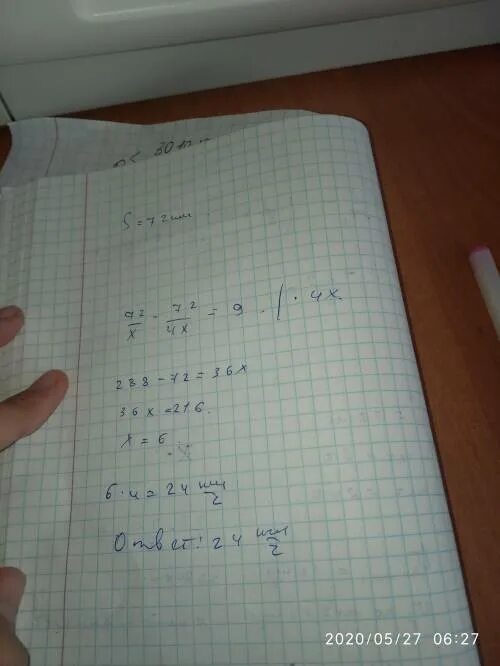 30
S = 72 км
72/x - 72/4x = 9 | · 4x
288 - 72 = 36x
36x = 216.
x = 6
6 · 4 = 24 км/г
Ответ: 24 км/г
2020/05/27 06:27